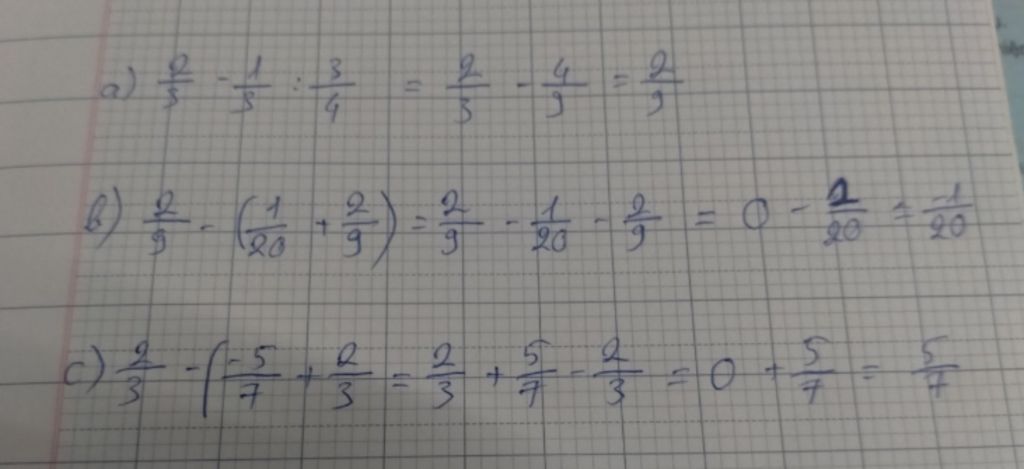 a) 2/3 - 1/3 : 3/4 = 2/3 - 4/9 = 2/9
b) 2/9 - (1/20 + 2/9) = 2/9 - 1/20 - 2/9 = 0 - 1/20 = -1/20
c) 2/3 - (-5/7 + 2/3 = 2/3 + 5/7 - 2/3 = 0 + 5/7 = 5/7